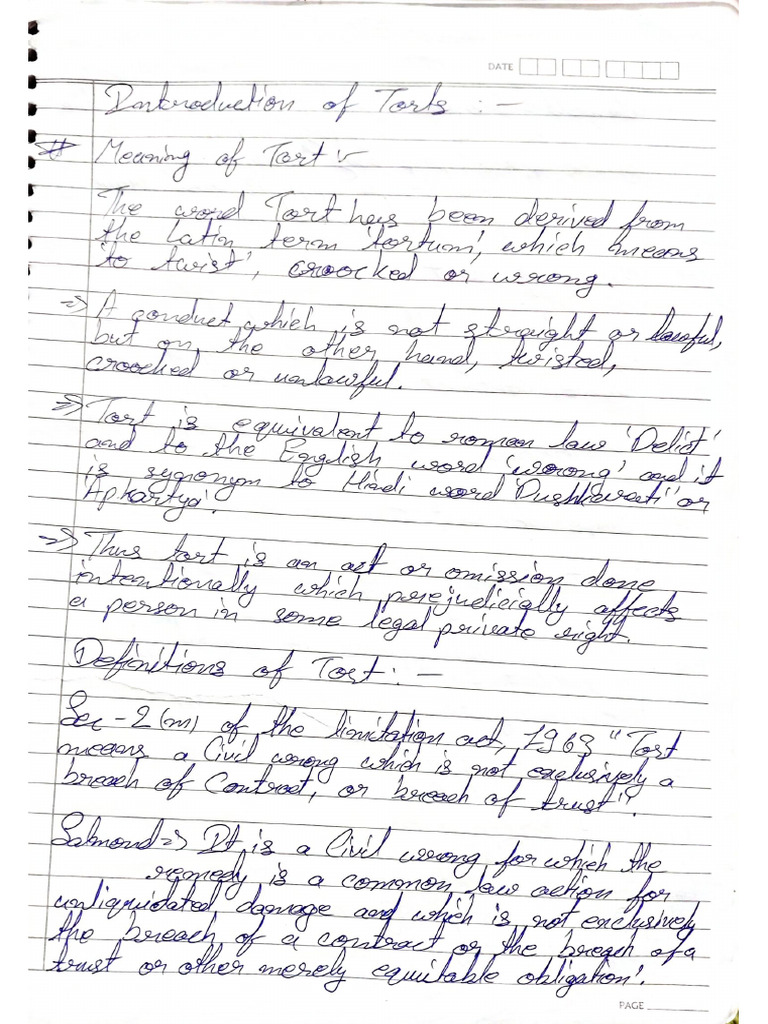 DATE
Introduction of Torts :-
# Meaning of Tort :-
The word Tort has been derived from
the Latin term 'tortum', which means
'to twist', croocked or wrong.
=> A conduct which is not straight or lawful,
but on the other hand, twisted,
croocked or unlawful.
=> Tort is equivalent to roman law 'Delict'
and to the English word 'wrong' and it
is synonym to Hindi word 'Dushkrati' or
'Apkartya'.
=> Thus tort is an act or omission done
intentionally which prejudicially affects
a person in some legal private right.
Definitions of Tort :-
Sec-2(m) of the limitation act, 1963 "Tort
means a Civil wrong which is not exclusively a
breach of Contract, or breach of trust".
Salmond => It is a Civil wrong for which the
remedy is a common law action for
unliquidated damage and which is not exclusively
the breach of a contract or the breach of a
trust or other merely equitable obligation'.
PAGE